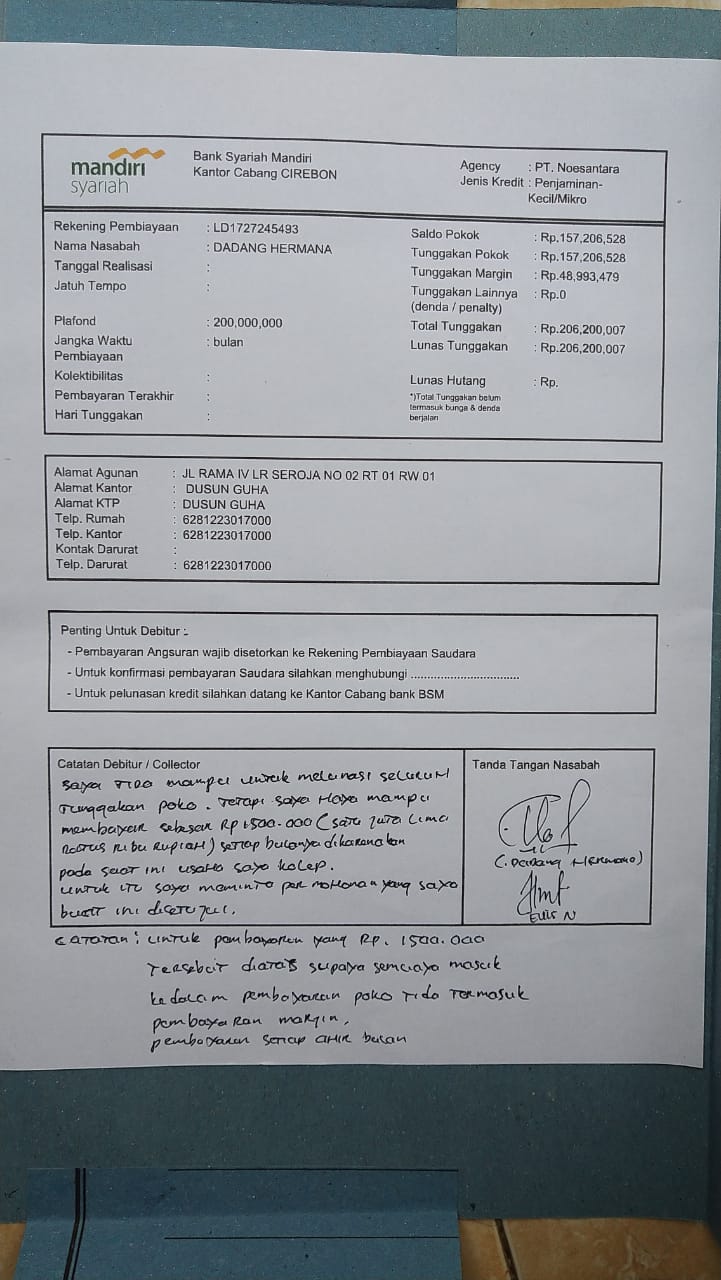 mandiri
syariah
Bank Syariah Mandiri
Kantor Cabang CIREBON
Agency : PT. Noesantara
Jenis Kredit : Penjaminan-
Kecil/Mikro
Rekening Pembiayaan : LD1727245493
Nama Nasabah : DADANG HERMANA
Tanggal Realisasi :
Jatuh Tempo :
Plafond : 200,000,000
Jangka Waktu : bulan
Pembiayaan
Kolektibilitas :
Pembayaran Terakhir :
Hari Tunggakan :
Saldo Pokok : Rp.157,206,528
Tunggakan Pokok : Rp.157,206,528
Tunggakan Margin : Rp.48,993,479
Tunggakan Lainnya : Rp.0
(denda / penalty)
Total Tunggakan : Rp.206,200,007
Lunas Tunggakan : Rp.206,200,007
Lunas Hutang : Rp.
*)Total Tunggakan belum
termasuk bunga & denda
berjalan
Alamat Agunan : JL RAMA IV LR SEROJA NO 02 RT 01 RW 01
Alamat Kantor : DUSUN GUHA
Alamat KTP : DUSUN GUHA
Telp. Rumah : 6281223017000
Telp. Kantor : 6281223017000
Kontak Darurat :
Telp. Darurat : 6281223017000
Penting Untuk Debitur :-
- Pembayaran Angsuran wajib disetorkan ke Rekening Pembiayaan Saudara
- Untuk konfirmasi pembayaran Saudara silahkan menghubungi .................................
- Untuk pelunasan kredit silahkan datang ke Kantor Cabang bank BSM
Catatan Debitur / Collector
saya TIDA mampu untuk melunasi seluruH
Tunggakan poko. Tetapi saya Haya mampu
membayar sebesar Rp 1500.000 (satu juta Lima
Ratus Ribu RupiaH) setiap bulanya dikarenakan
pada saat ini usaHa saya kolep.
untuk itu saya meminta permoHonan yang saya
buat ini disetujui.
Tanda Tangan Nasabah
(. Dadang Hermana)
EUIS N
CATATAN : untuk pembayaran yang Rp. 1500.000
Tersebut diatas supaya semuaya masuk
kedalam pembayaran poko Tida Termasuk
pembayaran margin,
pembayaran setiap aHir bulan